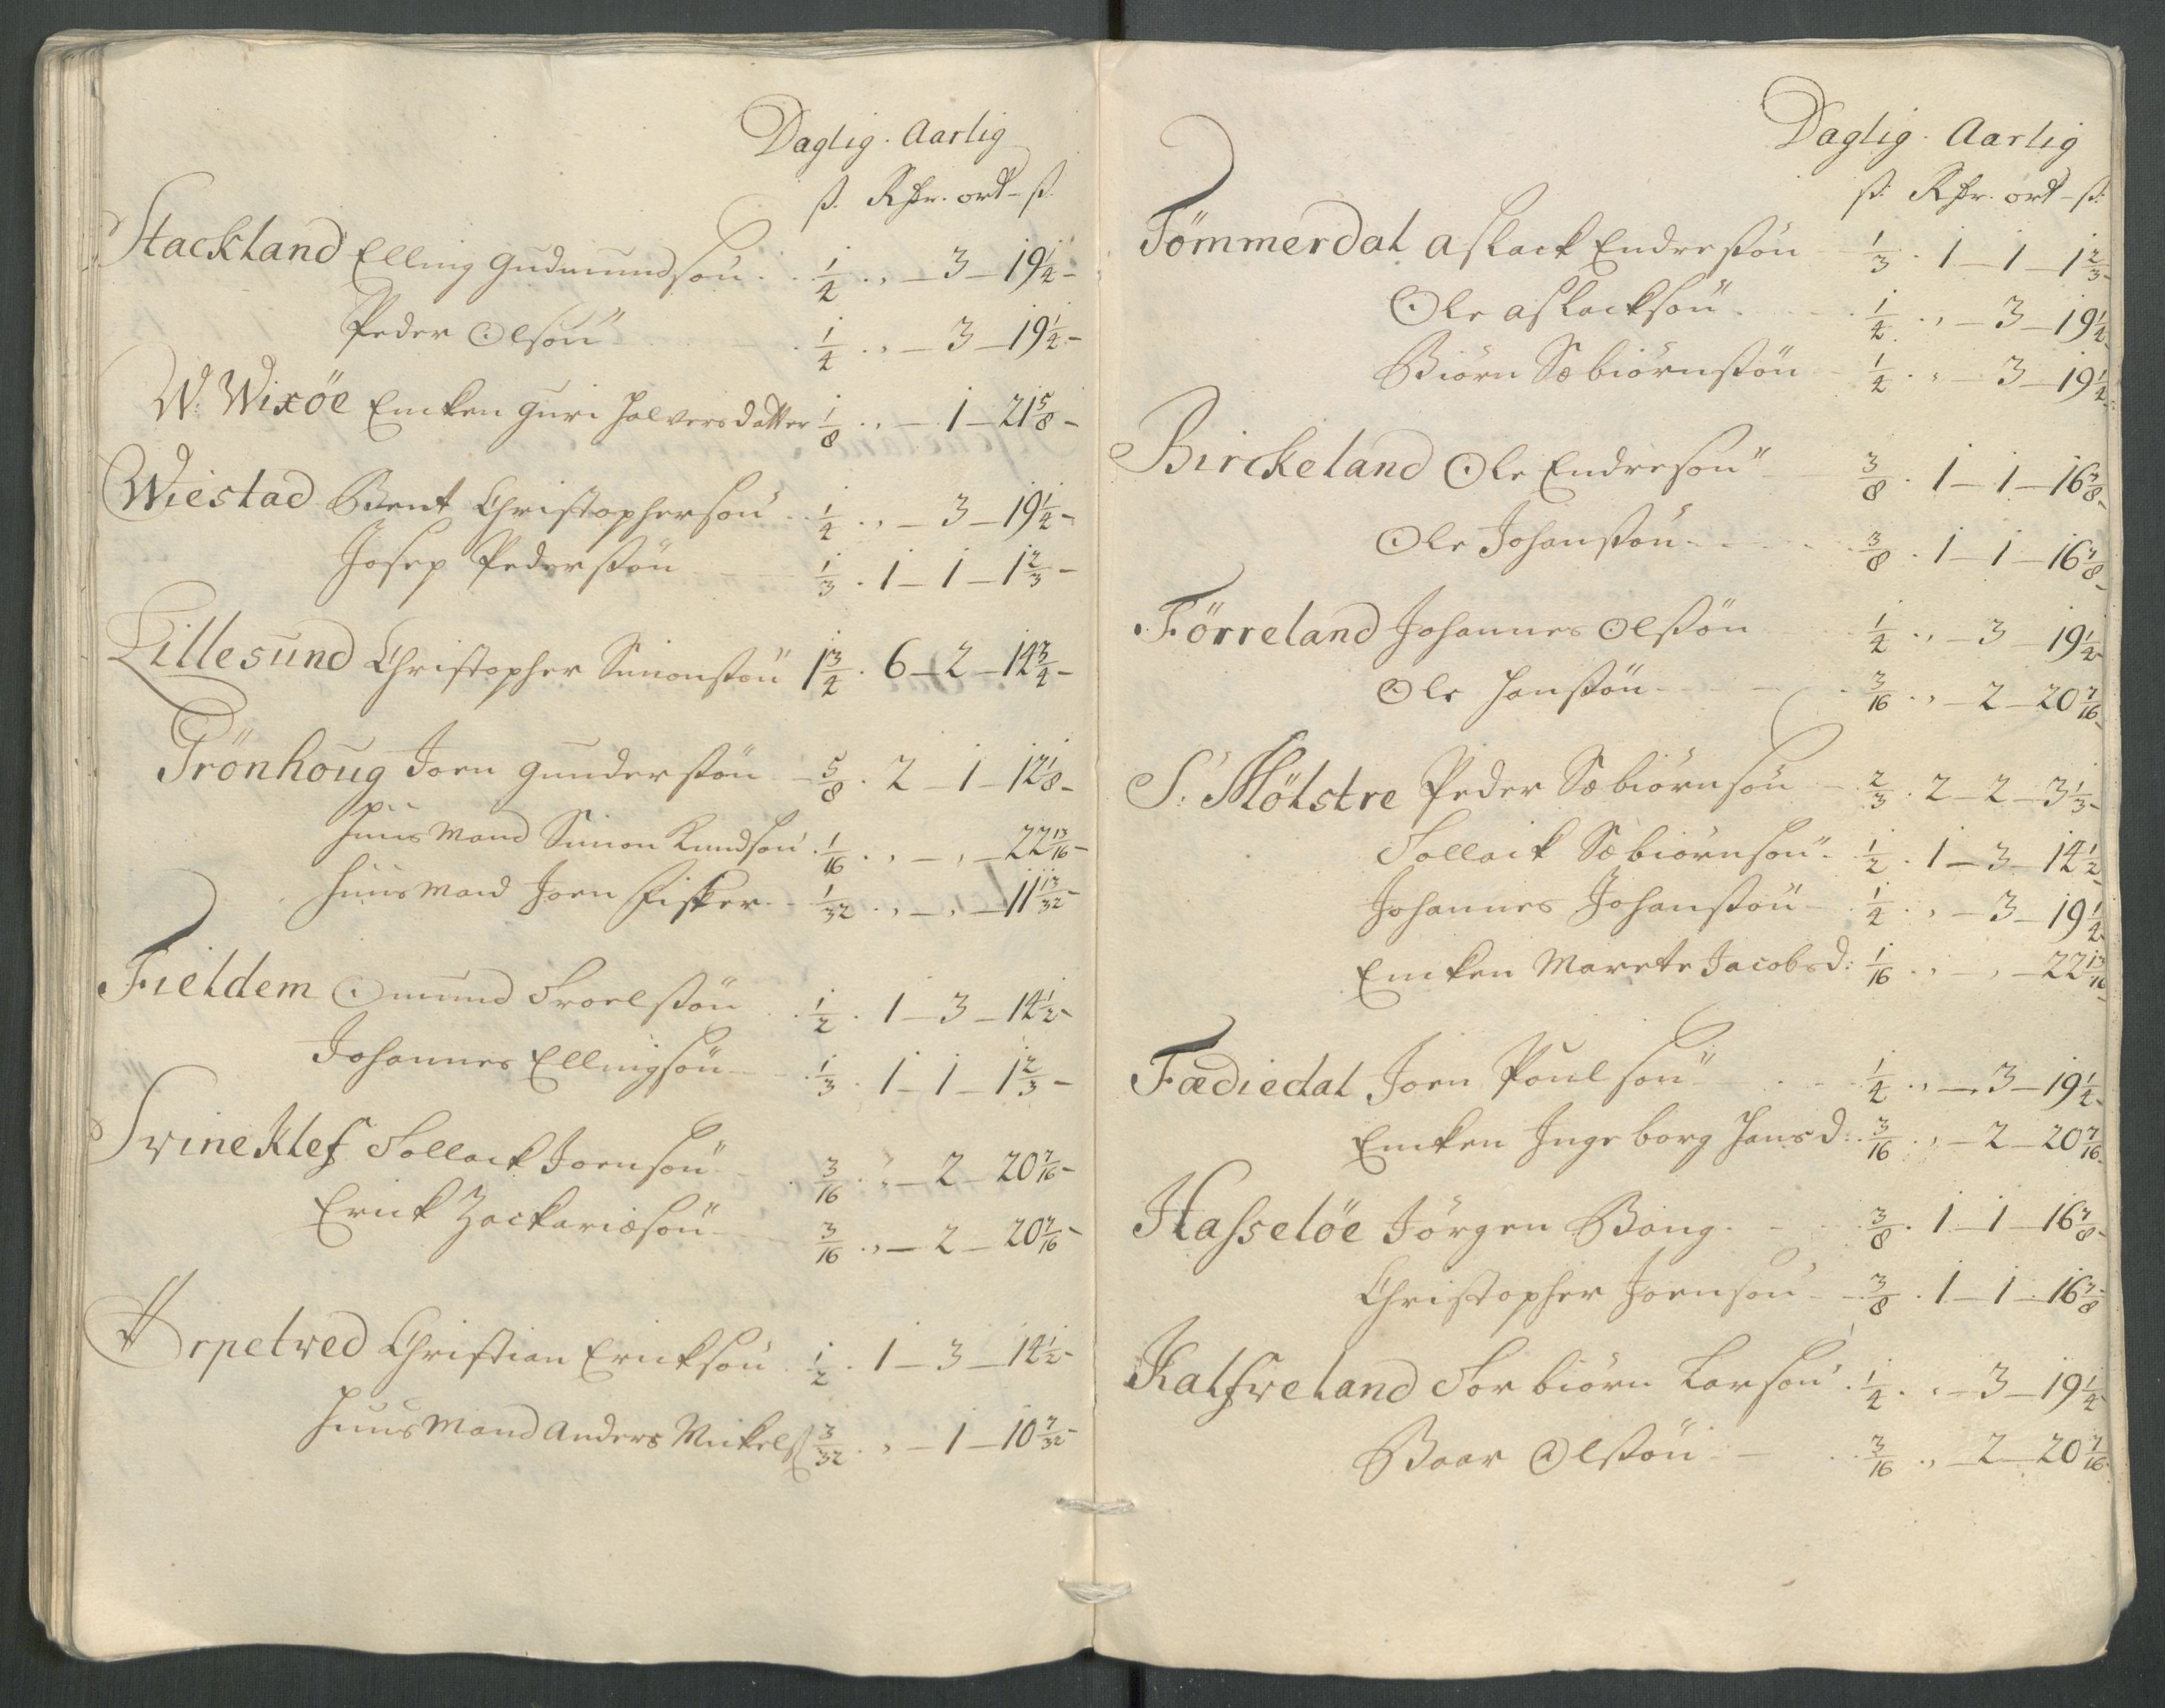 Daglig. Aarlig
ß. Rdr. ort - ß.
Stackland Elling Gudmundsøn . . 1/4 . „ — 3 — 19 1/4 -
Peder Olsøn . . 1/4 . „ — 3 — 19 1/4 -
W: Wixöe Encken Guri Halversdatter 1/8 . „ — 1 — 21 5/8 -
Wiestad Bent Christophersøn . . 1/4 . „ — 3 — 19 1/4 -
Josep Pederssøn 1/3 . 1 — 1 — 1 2/3 -
Lillesund Christopher Simonssøn 1 3/4 . 6 — 2 — 14 3/4 -
Grönhoug Joen Gunderssøn 5/8 . 2 — 1 — 12 1/8 -
Huusmand Simon Knudsøn . 1/16 . „ — „ — 22 13/16 -
Huusmand Joen Fisker . . 1/32 . „ — „ — 11 13/32 -
Fieldem Omund Troelssøn . . 1/2 . 1 — 3 — 14 1/2 -
Johannes Ellingsøn . 1/3 . 1 — 1 — 1 2/3 -
Svineklef Tollack Joensøn . 3/16 . „ — 2 — 20 7/16 -
Erick Zackariæsøn 3/16 . „ — 2 — 20 7/16 -
Arpetved Christian Ericksøn . 1/2 . 1 — 3 — 14 1/2 -
Huusmand Anders Mickelß 3/32 . „ — 1 — 10 7/32 -
Daglig. Aarlig
ß: Rdr. ort - ß:
Tömmerdal Aslack Endressøn 1/3 . 1 — 1 — 1 2/3 -
Ole Aslacksøn . 1/4 . „ — 3 — 19 1/4
Biörn Sebiörnssøn 1/4 . „ — 3 — 19 1/4
Birckeland Ole Endresøn 3/8 . 1 — 1 — 16 7/8 -
Ole Johanssøn . . . 3/8 . 1 — 1 — 16 7/8 -
Förreland Johannes Olssøn 1/4 . „ — 3 — 19 1/4
Ole Hanssøn . . . 3/16 . „ — 2 — 20 7/16 -
S: Mölstre Peder Sebiörnsøn 2/3 . 2 — 2 — 3 1/3 -
Tollack Sebiörnsøn . 1/2 . 1 — 3 — 14 1/2
Johannes Johanssøn . 1/4 . „ — 3 — 19 1/4
Encken Marete Jacobsd: 1/16 . „ — „ — 22 13/16
Fædiedal Joen Poulsøn . . 1/4 . „ — 3 — 19 1/4 -
Encken Ingeborg Hansd: . 3/16 . „ — 2 — 20 7/16
Hasseløe Jörgen Bang . . . 3/8 . 1 — 1 — 16 7/8 -
Christopher Joensøn . . 3/8 . 1 — 1 — 16 7/8
Kalfveland Torbiörn Larsøn . 1/4 . „ — 3 — 19 1/4
Baar Olssøn . . 3/16 . „ — 2 — 20 7/16